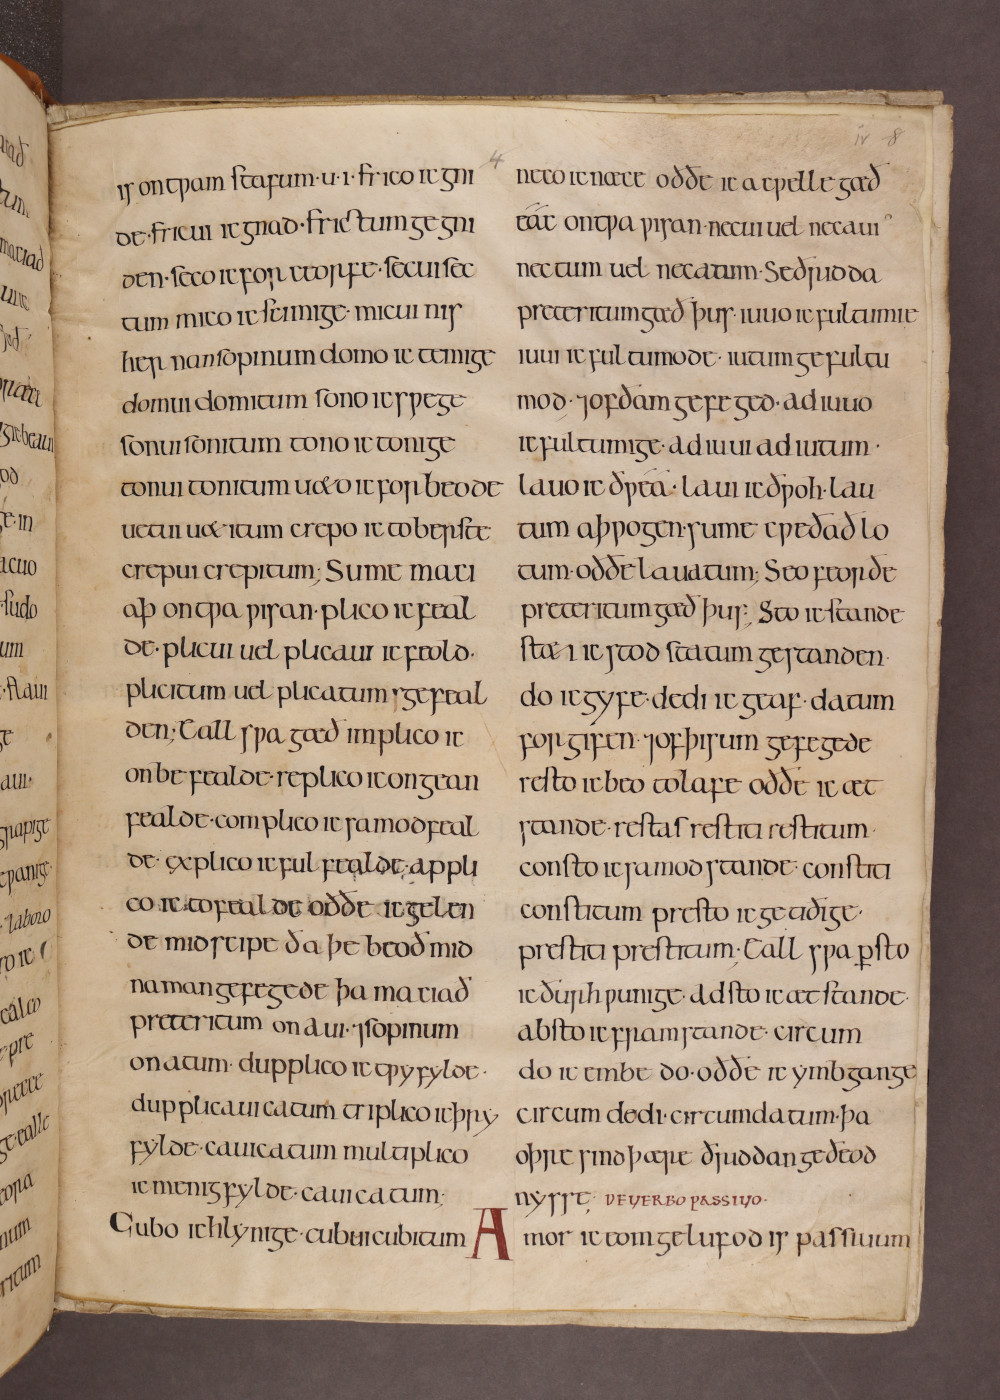 4
iv 8
is on tƿam stafum·u·i·frico ic gni
de·fricui ic gnad·frictum gegni
den·seco ic forceorfe·secui sec
tum mico ic scimige· micui nis
her nan sopinum domo ic temige
domui domitum sono ic sƿege
sonui sonitum tono ic tonige
tonui tonitum u&o ic forbeode
uetui u&itum crepo ic toberste
crepui crepitum; Sume maci
aþ on tƿa ƿisan·plico ic feal
de·plicui uel plicaui ic feold·
plicitum uel plicatum ⁊gefeal
den; Eall sƿa gæð implico ic
onbefealde·replico ic ongean
fealde·complico ic samod feal
de·explico ic ful fealde·appli
co ic to fealde oððe ic gelen
de mid scipe ða þe beoð mid
naman gefegede þa maciað
preteritum on aui·⁊sopinum
on atum· dupplico ic tƿyfylde·
dupplicaui catum triplico ic þry
fylde·caui catum multiplico
ic menigfylde·caui catum;
Cubo ic hlynige·cubui cubitum
neco ic næce oððe ic acƿelle gæð
eác on tƿa ƿisan·necui uel necaui
nectum uel necatum·Se ðridda
preteritum gæð þus·iuuo ic fultumie
iuui ic fultumode·iutum gefultu
mod·⁊of ðam gefeged·adiuuo
ic fultumige·adiuui adiutum·
lauo ic ðƿea·laui ic ðƿoh·lau
tum aþƿogen·sume cƿeðað lo
tum·oððe lauatum; Seo feorðe
preteritum gæð þus; Sto ic stande
steti ic stod statum gestanden
do ic gyfe·dedi ic geaf·datum
forgifen·⁊of þisum gefegede
resto ic beo to lafe oððe ic æt
stande·restas restiti restitum·
consto ic samod stande·constiti
constitum presto ic getiðige·
prestiti prestitum; Eall sƿa ꝑsto
ic ðurhƿunige·adsto ic ætstande·
absto ic framstande·circum
do ic embe do·oððe ic ymbgange
circumdedi·circumdatum·þa
oþre sind þære ðriddan geðeod
nysse; DE UERBO PASSIUO·
Amor ic eom gelufod is passiuum